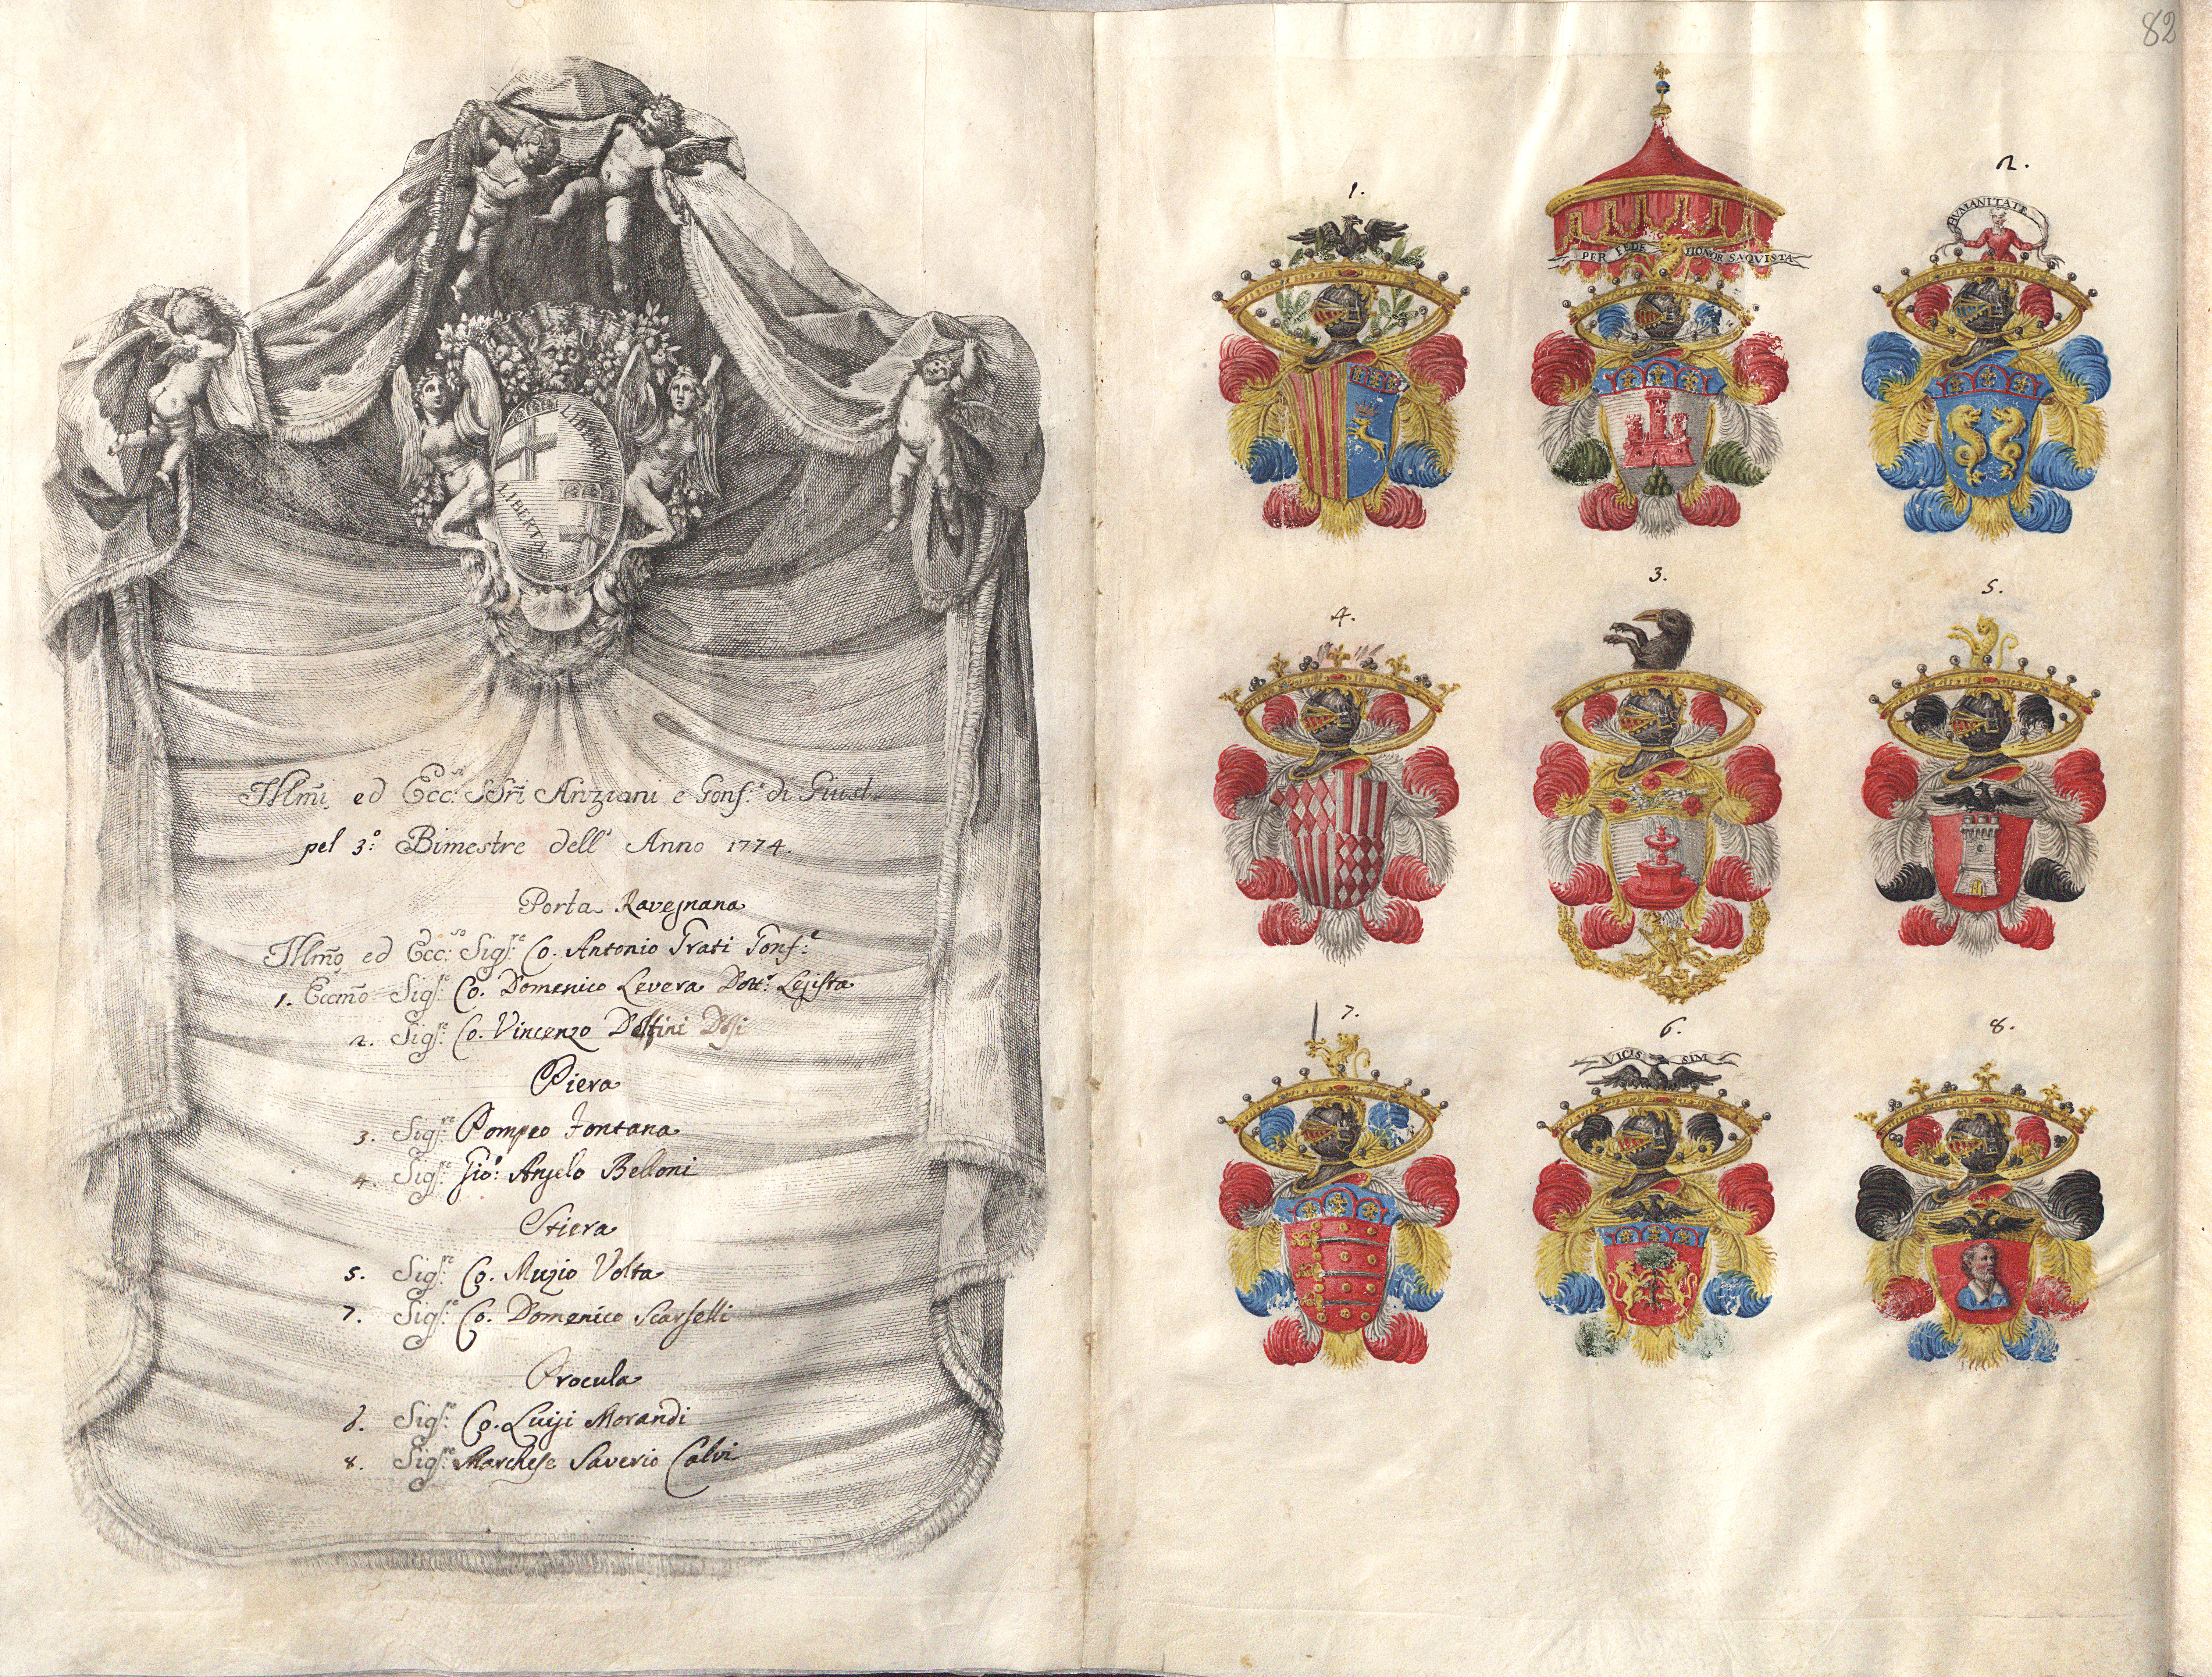 LIBERTAS
LIBERTAS
Illm̃i ed Ecc:si SSri Anziani e Gonf:e di Giust.
pel 3.º Bimestre dell' Anno 1774.
Porta Ravegnana
Illm̃o ed Ecc:so Sig:re Co. Antonio Grati Gonf:e
1. Eccm̃o Sig:re Co. Domenico Levera Dott:e Legista
2. Sig:re Co. Vincenzo Dolfini Dosi
Piera
3. Sig:re Pompeo Fontana
4. Sig:re Gio: Angelo Belloni
Stiera
5. Sig:re Co. Muzio Volta
7. Sig:re Co. Domenico Scarselli
Procula
6. Sig:re Co. Luigi Morandi
8. Sig:re Marchese Saverio Calvi
82
1.
PER FEDE HONOR SAQVISTA
2.
HVMANITATE
4.
3.
5.
7.
6.
VICIS SIM
8.